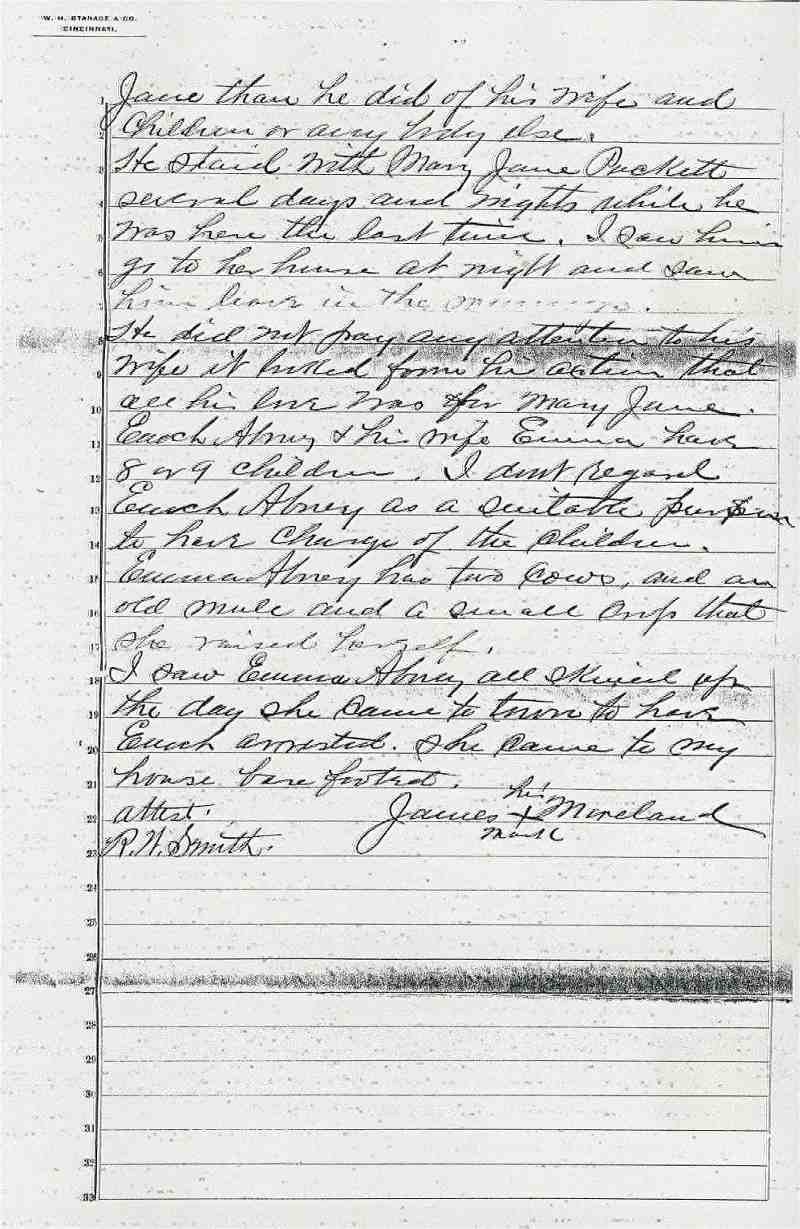 W. H. STANAGE & CO.
CINCINNATI.
1 Jane than he did of his wife and
2 Children or any body else.
3 He staid with Mary Jane Puckett
4 several days and nights while he
5 was here the last time. I saw him
6 go to her house at night and saw
7 him leave in the morning.
8 He did not pay any attention to his
9 wife it looked form his action that
10 all his love was for Mary Jane.
11 Enoch Abney & his wife Emma have
12 8 or 9 children. I dont regard
13 Enoch Abney as a suitable person
14 to have charge of the children.
15 Emma Abney has two cows, and an
16 old mule and a small crop that
17 she raised herself.
18 I saw Emma Abney all skined up
19 the day she came to town to have
20 Enoch arrested. She came to my
21 house bare footed.
22 attest. James his X mark Moreland
23 R. W. Smith.
24
25
26
27
28
29
30
31
32
33